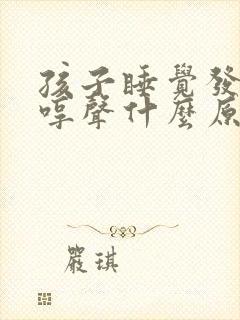 孩子睡覺發
哼聲什麼原
嚴琪